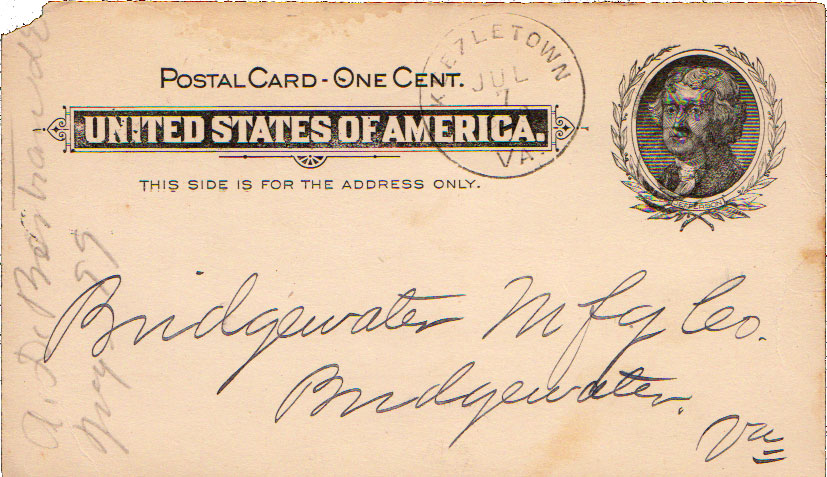 POSTAL CARD - ONE CENT.
UNITED STATES OF AMERICA.
THIS SIDE IS FOR THE ADDRESS ONLY.
JUL
7
VA.
Bridgewater Mfg Co.
Bridgewater.
Va